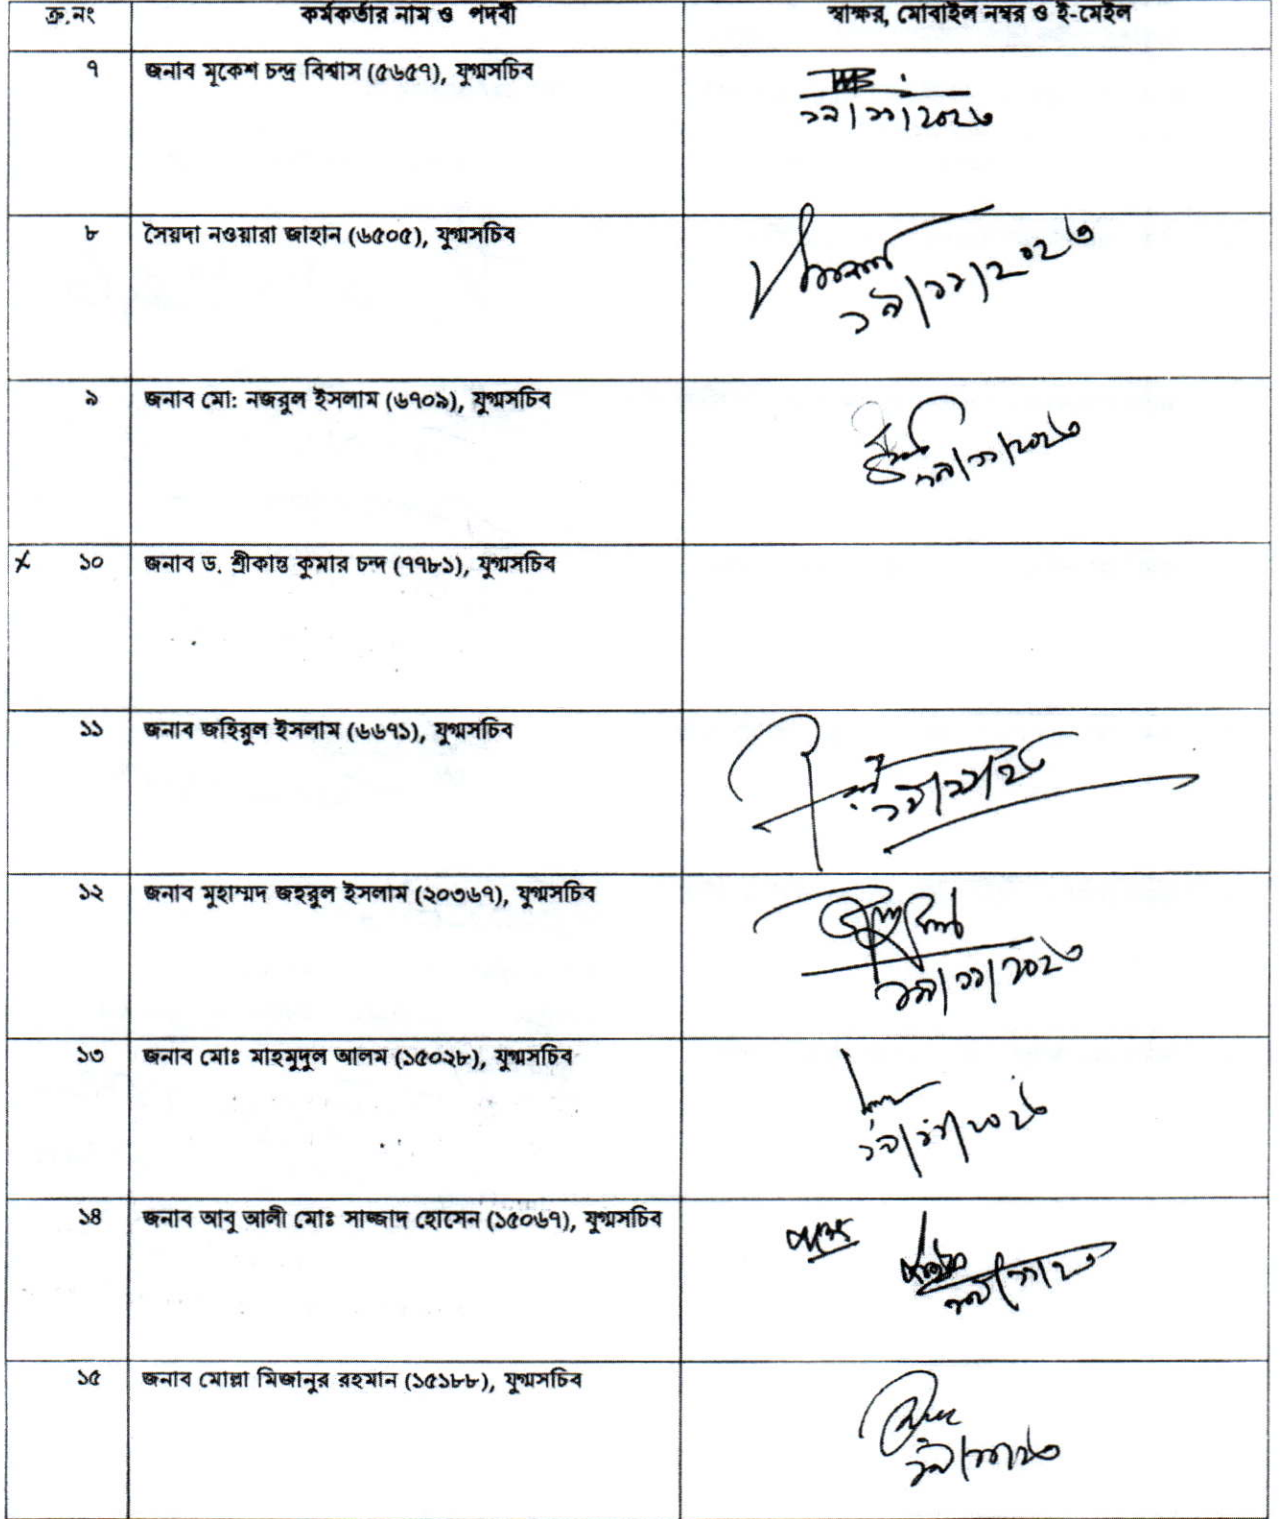 ক্র.নং কর্মকর্তার নাম ও পদবী স্বাক্ষর, মোবাইল নম্বর ও ই-মেইল
৭ জনাব মুকেশ চন্দ্র বিশ্বাস (৫৬৫৭), যুগ্মসচিব
১৯/১১/২০২৩
৮ সৈয়দা নওয়ারা জাহান (৬৫০৫), যুগ্মসচিব
১৯/১১/২০২৩
৯ জনাব মো: নজরুল ইসলাম (৬৭০৯), যুগ্মসচিব
১৯/১১/২০২৩
x ১০ জনাব ড. শ্রীকান্ত কুমার চন্দ (৭৭৮১), যুগ্মসচিব
১১ জনাব জহিরুল ইসলাম (৬৬৭১), যুগ্মসচিব
১৯/১১/২৩
১২ জনাব মুহাম্মদ জহরুল ইসলাম (২০৩৬৭), যুগ্মসচিব
১৯/১১/২০২৩
১৩ জনাব মোঃ মাহমুদুল আলম (১৫০২৮), যুগ্মসচিব
১৯/১১/২০২৩
১৪ জনাব আবু আলী মোঃ সাজ্জাদ হোসেন (১৫০৬৭), যুগ্মসচিব
১৯/১১/২৩
১৫ জনাব মোল্লা মিজানুর রহমান (১৫১৮৮), যুগ্মসচিব
১৯/১১/২৩